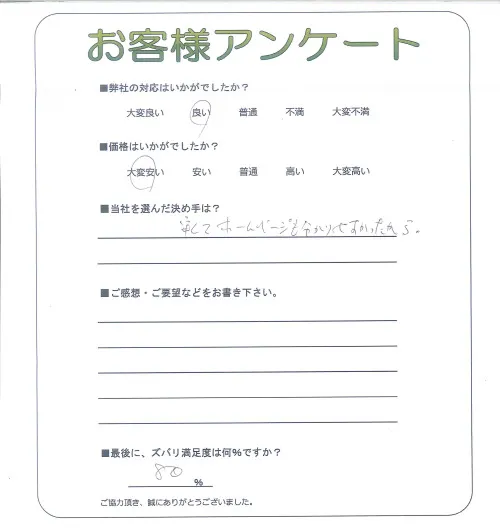 お客様アンケート
■弊社の対応はいかがでしたか？
大変良い 良い 普通 不満 大変不満
■価格はいかがでしたか？
大変安い 安い 普通 高い 大変高い
■当社を選んだ決め手は？
安くてホームページも分かりやすかったから。
■ご感想・ご要望などをお書き下さい。
■最後に、ズバリ満足度は何%ですか？
80 %
ご協力頂き、誠にありがとうございました。